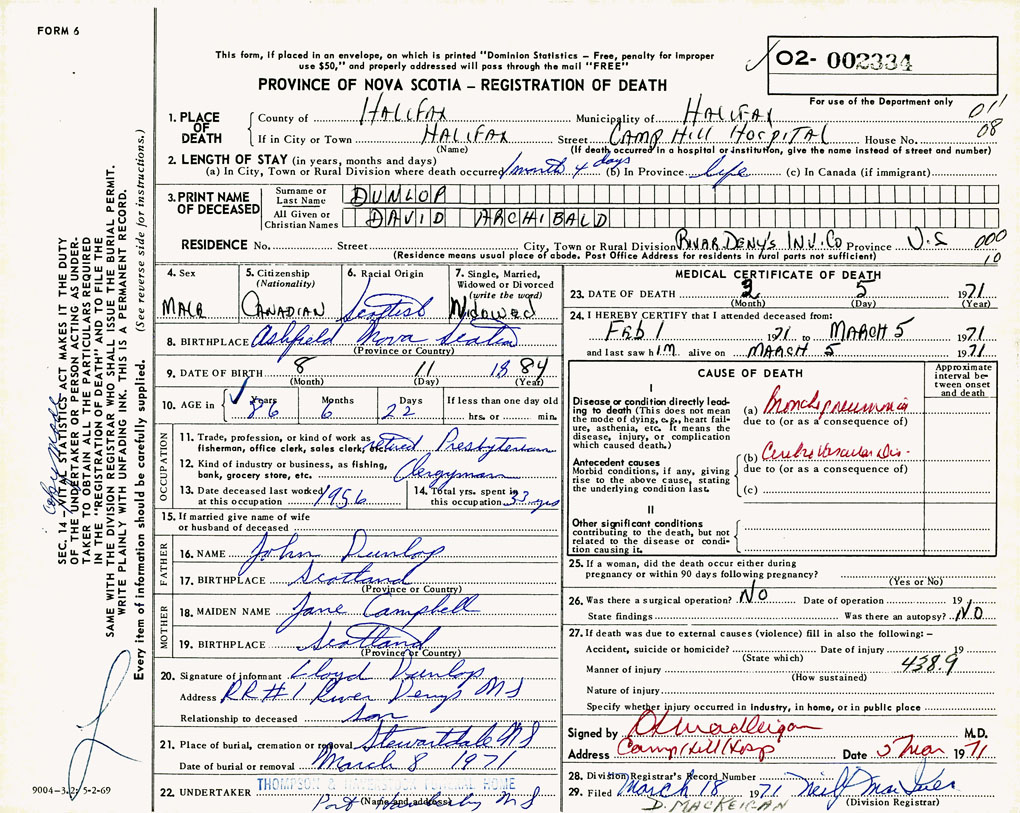 FORM 6
This form, if placed in an envelope, on which is printed "Dominion Statistics – Free, penalty for improper
use $50," and properly addressed will pass through the mail "FREE"
02- 002334
PROVINCE OF NOVA SCOTIA – REGISTRATION OF DEATH
For use of the Department only
1. PLACE OF DEATH
County of HALIFAX Municipality of HALIFAX 011
If in City or Town HALIFAX Street CAMP HILL HOSPITAL House No. 08
(Name) (If death occurred in a hospital or institution, give the name instead of street and number)
2. LENGTH OF STAY (in years, months and days)
(a) In City, Town or Rural Division where death occurred 1 month 4 days (b) In Province life (c) In Canada (if immigrant)
3. PRINT NAME OF DECEASED
Surname or Last Name DUNLOP
All Given or Christian Names DAVID ARCHIBALD
RESIDENCE No. Street City, Town or Rural Division RIVAR DENY'S INV. CO Province 000
(Residence means usual place of abode. Post Office Address for residents in rural parts not sufficient) 10
4. Sex MALE
5. Citizenship (Nationality) CANADIAN
6. Racial Origin Scottish
7. Single, Married, Widowed or Divorced (write the word) WIDOWED
8. BIRTHPLACE Ashfield Nova Scotia
(Province or Country)
9. DATE OF BIRTH 8 11 1884
(Month) (Day) (Year)
10. AGE in Years 86 Months 6 Days 22 If less than one day old
hrs. or min.
OCCUPATION
11. Trade, profession, or kind of work as fisherman, office clerk, sales clerk, etc. retired Presbyterian
12. Kind of industry or business, as fishing, bank, grocery store, etc. Clergyman
13. Date deceased last worked at this occupation 1956
14. Total yrs. spent in this occupation 33 yrs
15. If married give name of wife
or husband of deceased
FATHER
16. NAME John Dunlop
17. BIRTHPLACE Scotland
(Province or Country)
MOTHER
18. MAIDEN NAME Jane Campbell
19. BIRTHPLACE Scotland
(Province or Country)
20. Signature of informant Lloyd Dunlop
Address RR#1 River Denys NS
Relationship to deceased son
21. Place of burial, cremation or removal Stewartdale NS
Date of burial or removal March 8 1971
22. UNDERTAKER THOMPSON & FUNERAL HOME
(Name and address) Port Hawkesbury NS
MEDICAL CERTIFICATE OF DEATH
23. DATE OF DEATH 3 5 1971
(Month) (Day) (Year)
24. I HEREBY CERTIFY that I attended deceased from:
FEB 1 1971 to MARCH 5 1971
and last saw him alive on MARCH 5 1971
CAUSE OF DEATH
Approximate interval between onset and death
I
Disease or condition directly leading to death (This does not mean the mode of dying, e.g., heart failure, asthenia, etc. It means the disease, injury, or complication which caused death.)
(a) Bronchopneumonia
due to (or as a consequence of)
Antecedent causes
Morbid conditions, if any, giving rise to the above cause, stating the underlying condition last.
(b) Cerebro Vascular Dis.
due to (or as a consequence of)
(c)
II
Other significant conditions contributing to the death, but not related to the disease or condition causing it.
25. If a woman, did the death occur either during
pregnancy or within 90 days following pregnancy?
(Yes or No)
26. Was there a surgical operation? NO Date of operation 19
State findings Was there an autopsy? NO
27. If death was due to external causes (violence) fill in also the following: –
Accident, suicide or homicide? Date of injury 19
(State which) 438.9
Manner of injury
(How sustained)
Nature of injury
Specify whether injury occurred in Industry, in home, or in public place
Signed by M.D.
Address Camp Hill Hosp Date 5 Mar 1971
28. Division Registrar's Record Number
29. Filed March 18 1971 Neil
D. MACKEIGAN (Division Registrar)
SEC. 14 – VITAL STATISTICS ACT MAKES IT THE DUTY
OF THE UNDERTAKER OR PERSON ACTING AS UNDER-
TAKER TO OBTAIN ALL THE PARTICULARS REQUIRED
IN THE "REGISTRATION OF DEATH" AND TO FILE THE
SAME WITH THE DIVISION REGISTRAR WHO SHALL ISSUE THE BURIAL PERMIT.
WRITE PLAINLY WITH UNFADING INK. THIS IS A PERMANENT RECORD.
Every item of information should be carefully supplied. (See reverse side for instructions.)
9004-3.2: 5-2-69